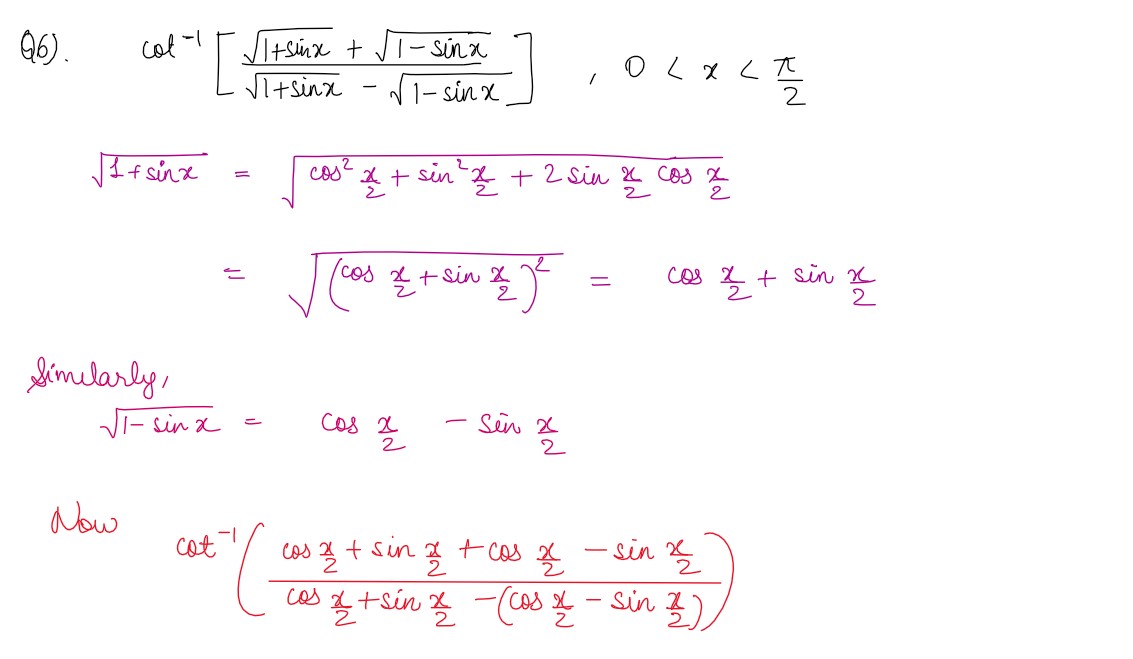 Q6). cot⁻¹ [ (√(1+sinx) + √(1−sinx)) / (√(1+sinx) − √(1−sinx)) ] , 0 < x < π/2
√(1+sinx) = √(cos² x/2 + sin² x/2 + 2 sin x/2 cos x/2)
= √((cos x/2 + sin x/2)²) = cos x/2 + sin x/2
Similarly,
√(1−sinx) = cos x/2 − sin x/2
Now
cot⁻¹ ( (cos x/2 + sin x/2 + cos x/2 − sin x/2) / (cos x/2 + sin x/2 − (cos x/2 − sin x/2)) )